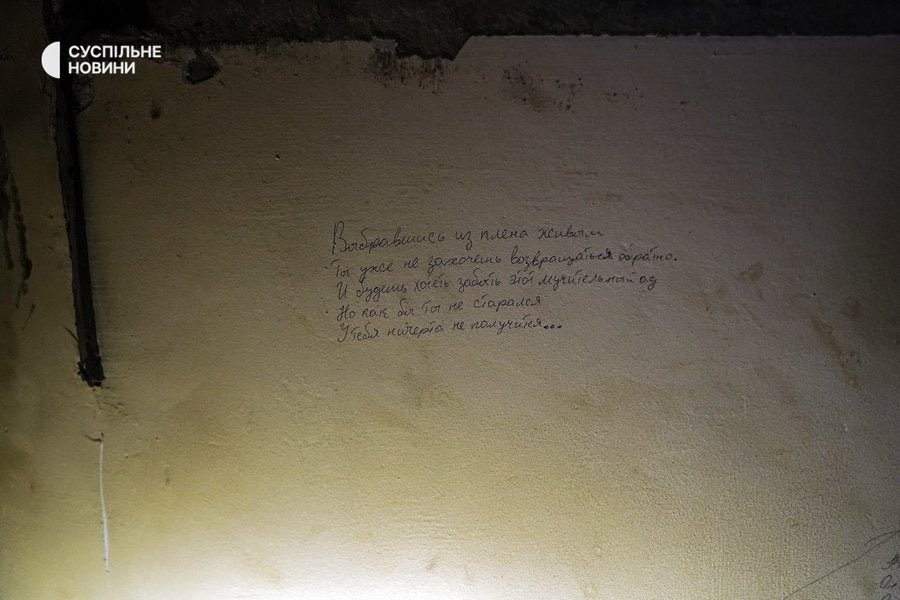 СУСПІЛЬНЕ
НОВИНИ
Выбравшись из плена живым
Ты уже не захочешь возвращаться обратно.
И будешь хотеть забыть этот мучительный ад
Но как бы ты не старался
У тебя ничерта не получится...